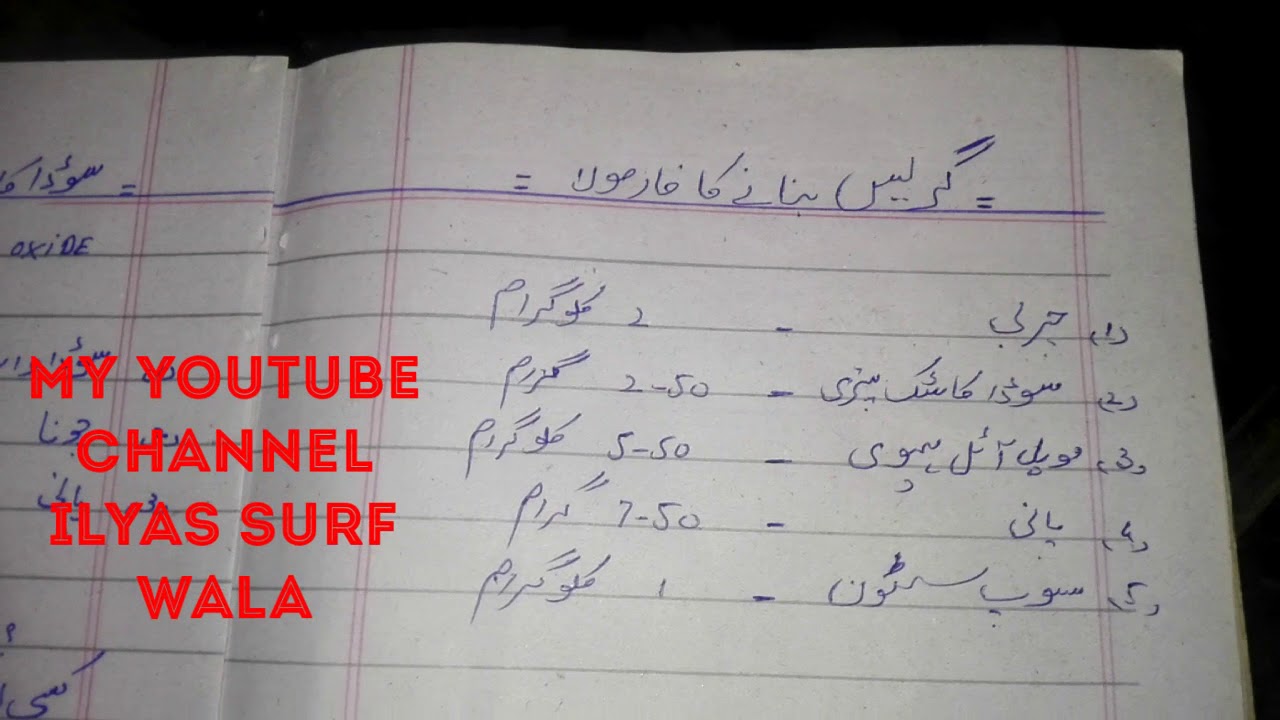 = گریس بنانے کا فارمولا =
(1) چربی - 2 کلوگرام
(2) سوڈا کاسٹک پتری - 2-50 گرام
(3) موبل آئل ہیوی - 5-50 کلوگرام
(4) پانی - 7-50 گرام
(5) سوپ سٹون - 1 کلوگرام
= سوڈا
OXIDE
سوڈا
چونا
پانی
MY YOUTUBE
CHANNEL
ILYAS SURF
WALA